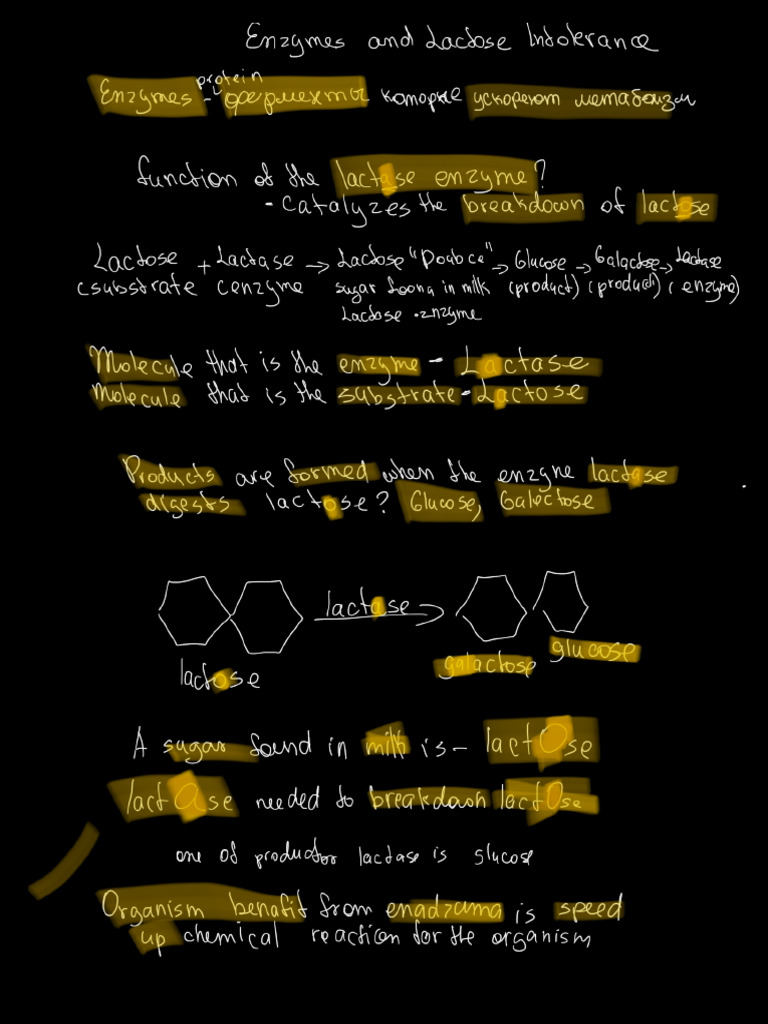 Enzymes and Lactose Intolerance
protein
Enzymes - ферменты которые ускоряют метаболизм
function of the lactase enzyme?
- Catalyzes the breakdown of lactose
Lactose + Lactase → Lactose " → Glucose → Galactose → Lactase
substrate enzyme sugar found in milk (product) (product) (enzyme)
Lactose · enzyme
Molecule that is the enzyme - Lactase
Molecule that is the substrate - Lactose
Products are formed when the enzyne lactase
digests lactose? Glucose, Galectose
lactase
lactose
galactose
glucose
A sugar found in milk is - lactOse
lactAse needed to breakdown lactOse
one of lactase is glucose
Organism benafit from enadzuma is speed
up chemical reaction for the organism